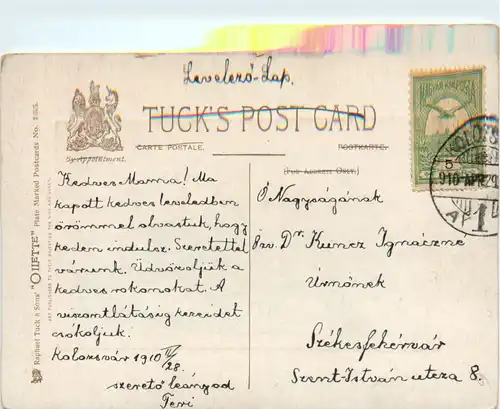 Levelező-Lap.
TUCK'S POST CARD
By Appointment.
CARTE POSTALE.
POSTKARTE.
(FOR ADDRESS ONLY.)
MAGYAR KIR. POSTA
910 APR 29
Raphael Tuck & Sons' "OILETTE" Plate Marked Postcards No.
Kedves Mama! Ma
kapott kedves leveledben
örömmel olvastuk, hogy
kedden indulsz. Szeretettel
várunk. Üdvözöljük a
kedves rokonokat. A
viszontlátásig kezeidet
csókoljuk.
Kolozsvár 1910 IV/28.
szerető leányod
Teri
Ő Nagyságának
özv. Dr Kuncz Ignáczné
Úrnőnek
Székesfehérvár
Szent-István utcza 8.